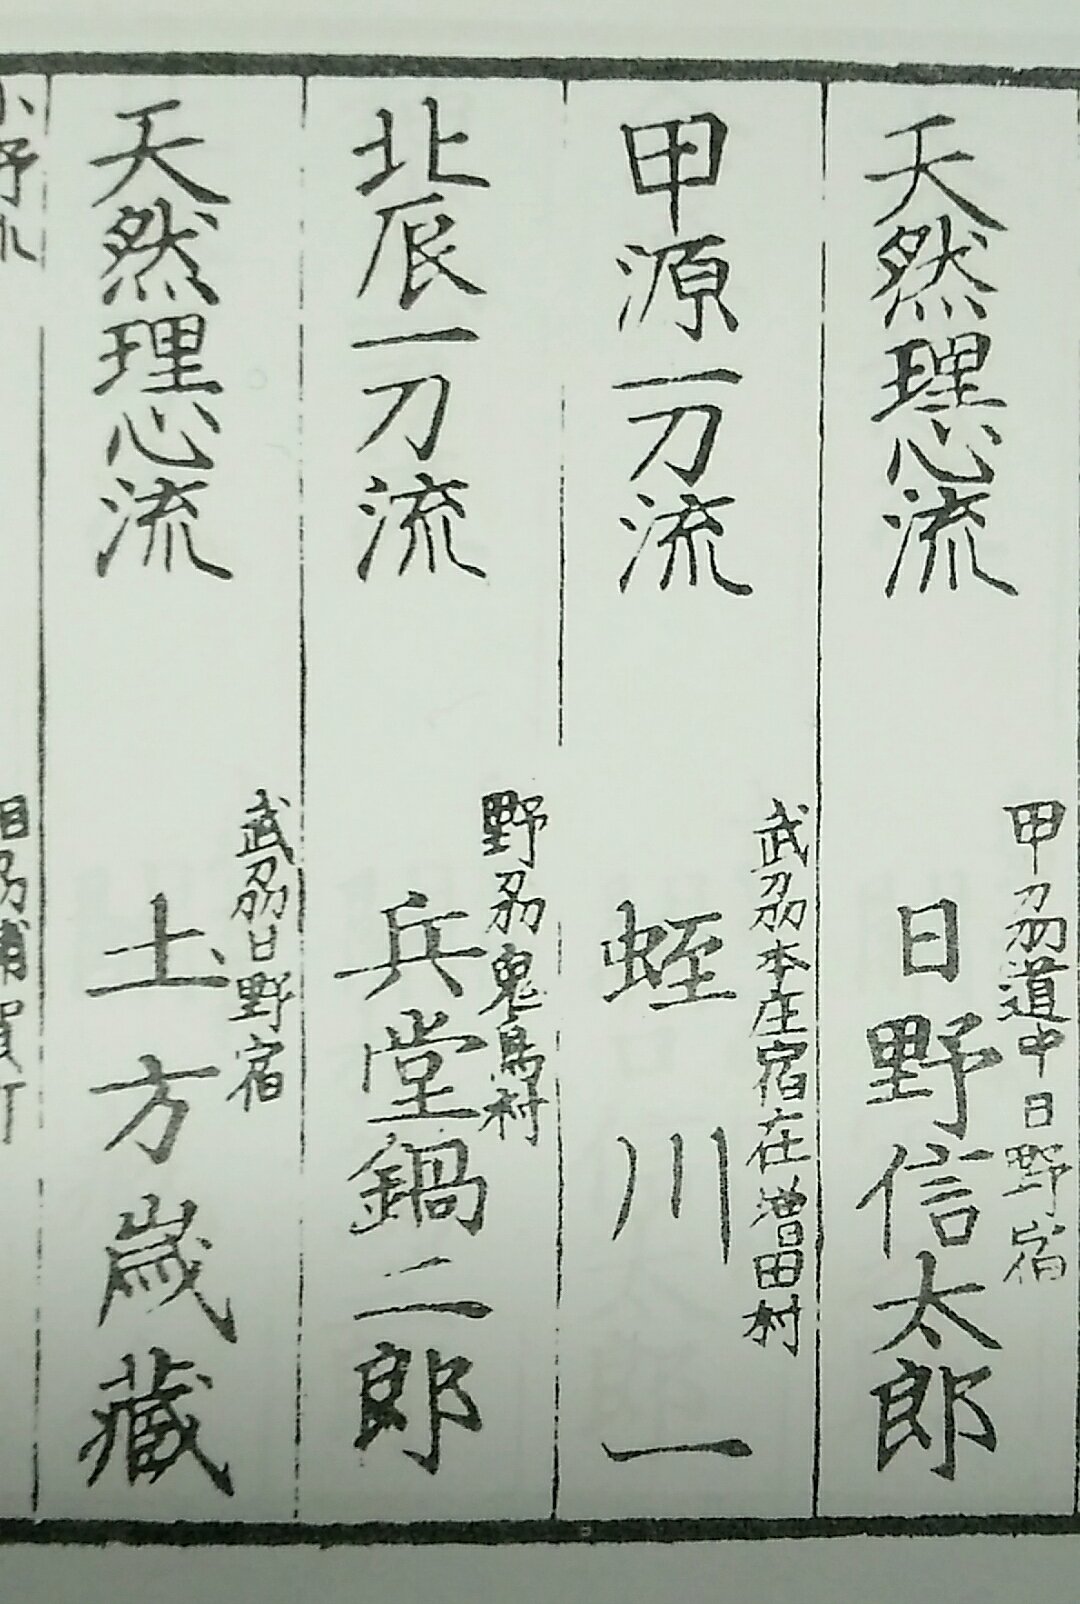 天然理心流
甲刕道中日野宿
日野信太郎
甲源一刀流
武刕本庄宿在増田村
蛭川一
北辰一刀流
野刕鬼島村
兵堂鍋二郎
天然理心流
武刕日野宿
土方歳蔵
小野
相刕浦賀町